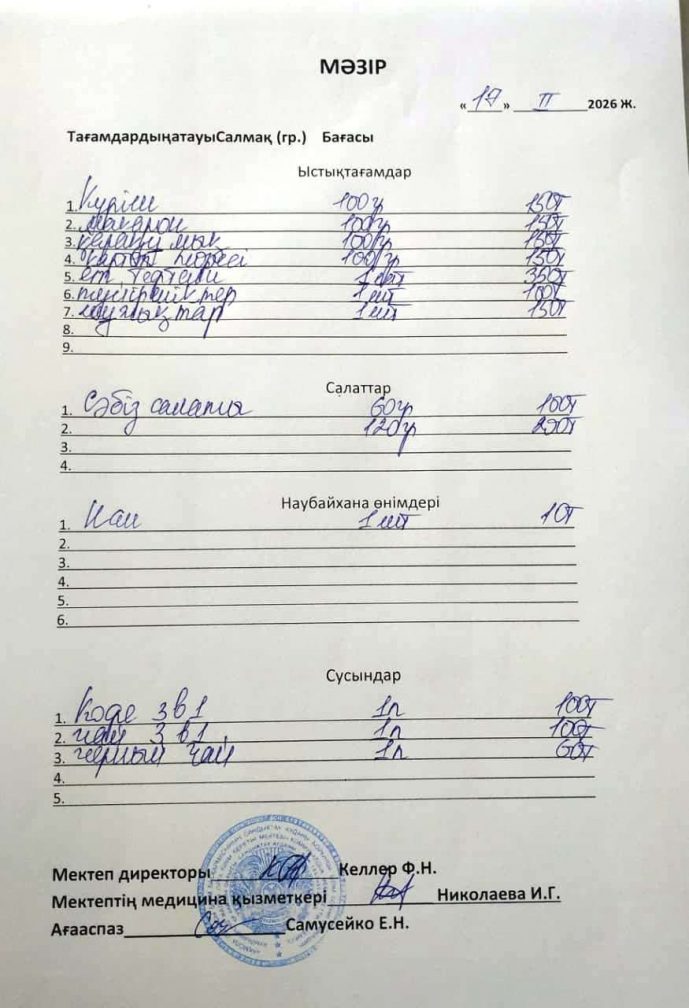 МӘЗІР
«17» II 2026 Ж.
ТағамдардыңатауыСалмақ (гр.) Бағасы
Ыстықтағамдар
1. Күріш 100гр 150т
2. макарон 100гр 150т
3. қарақұмық 100гр 150т
4. картоп пюресі 100гр 150т
5. ет тефтели 1 шт 350т
6. 1 шт 100т
7. шұжықтар 1 шт 150т
8.
9.
Салаттар
1. Сәбіз салаты 60гр 100т
2. 120гр 200т
3.
4.
Наубайхана өнімдері
1. Нан 1 шт 10т
2.
3.
4.
5.
6.
Сусындар
1. Кофе 3в1 1п 100т
2. чай 3в1 1п 100т
3. черный чай 1п 60т
4.
5.
Мектеп директоры Келлер Ф.Н.
Мектептің медицина қызметкері Николаева И.Г.
Ағааспаз Самусейко Е.Н.